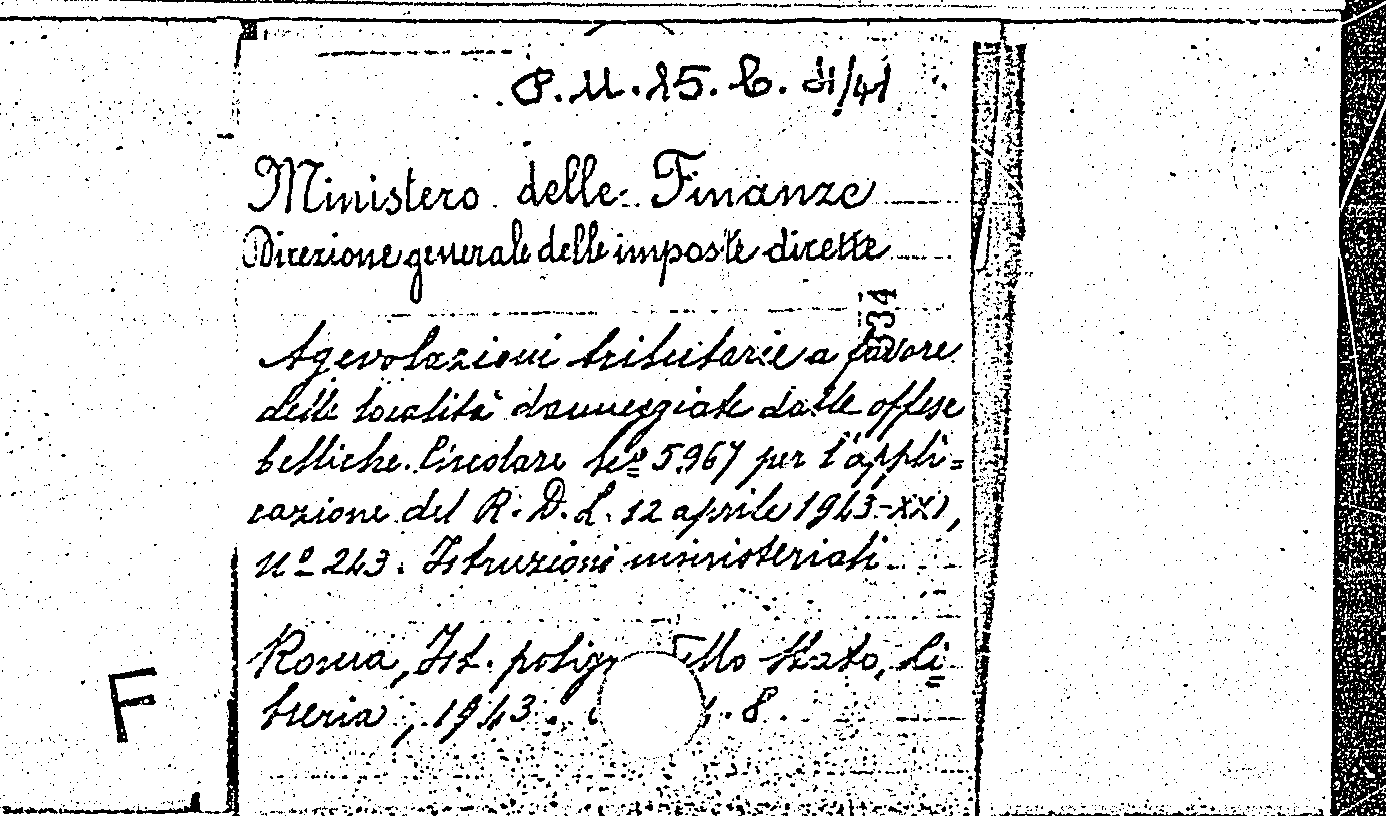 P.M. 25. C. 31/41
Ministero delle Finanze
Direzione generale delle imposte dirette
534
Agevolazioni tributarie a favore
delle località danneggiate dalle offese
belliche. Circolare N.º 5967 per l'appli=
cazione del R. D. L. 12 aprile 1943-XXI,
Nº 243. Istruzioni ministeriali
Roma, Ist. poligr dello Stato, Li
breria, 1943. . 8.
F